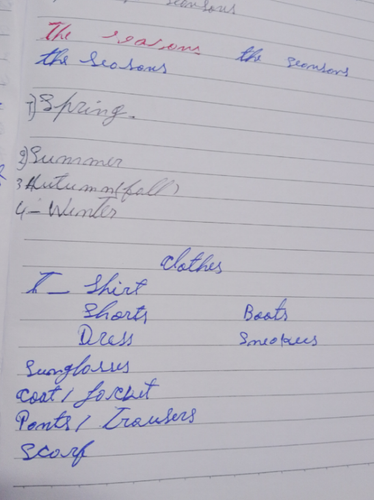 seasons
The seasons the seasons
the seasons
1) Spring.
2) Summer
3 Autumn (fall)
4 - Winter
clothes
T - Shirt
Shorts Boots
Dress Sneakers
Sunglasses
Coat / Jacket
Pants / Trousers
Scarf